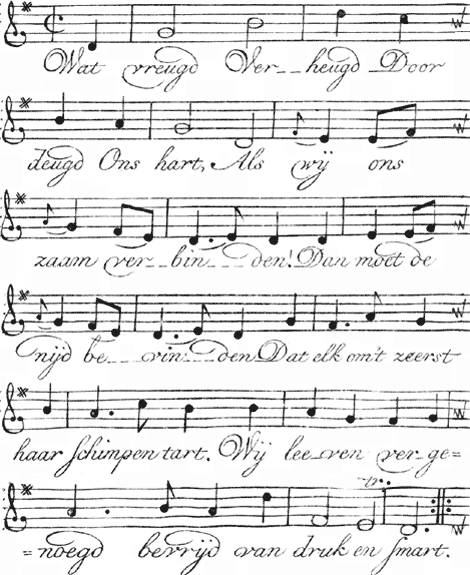 Wat vreugd Ver__heugd Door
deugd Ons hart, Als wij ons
zaam ver__bin___den! Dan moet de
nijd be___vin__den Dat elk om't zeerst
haar schimpen tart. Wij lee_ven ver_ge=
tr.
=noegd bevrijd van druk en smart.